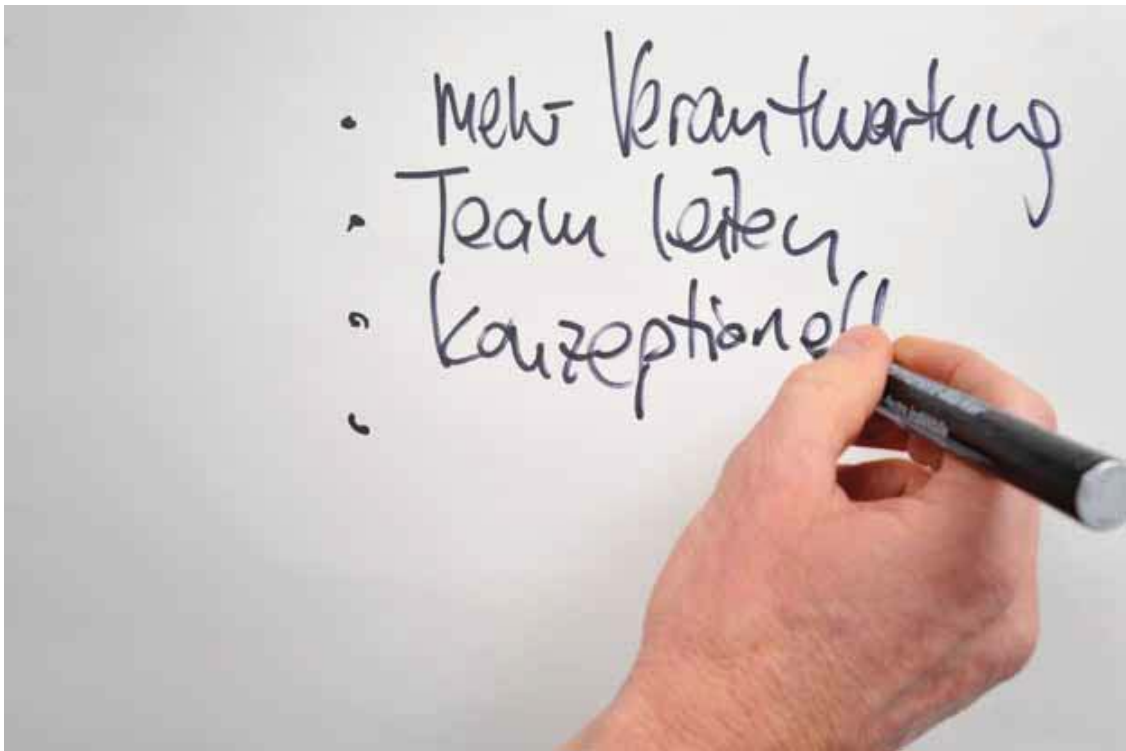 • mehr Verantwortung
• Team leiten
• konzeptionell
•